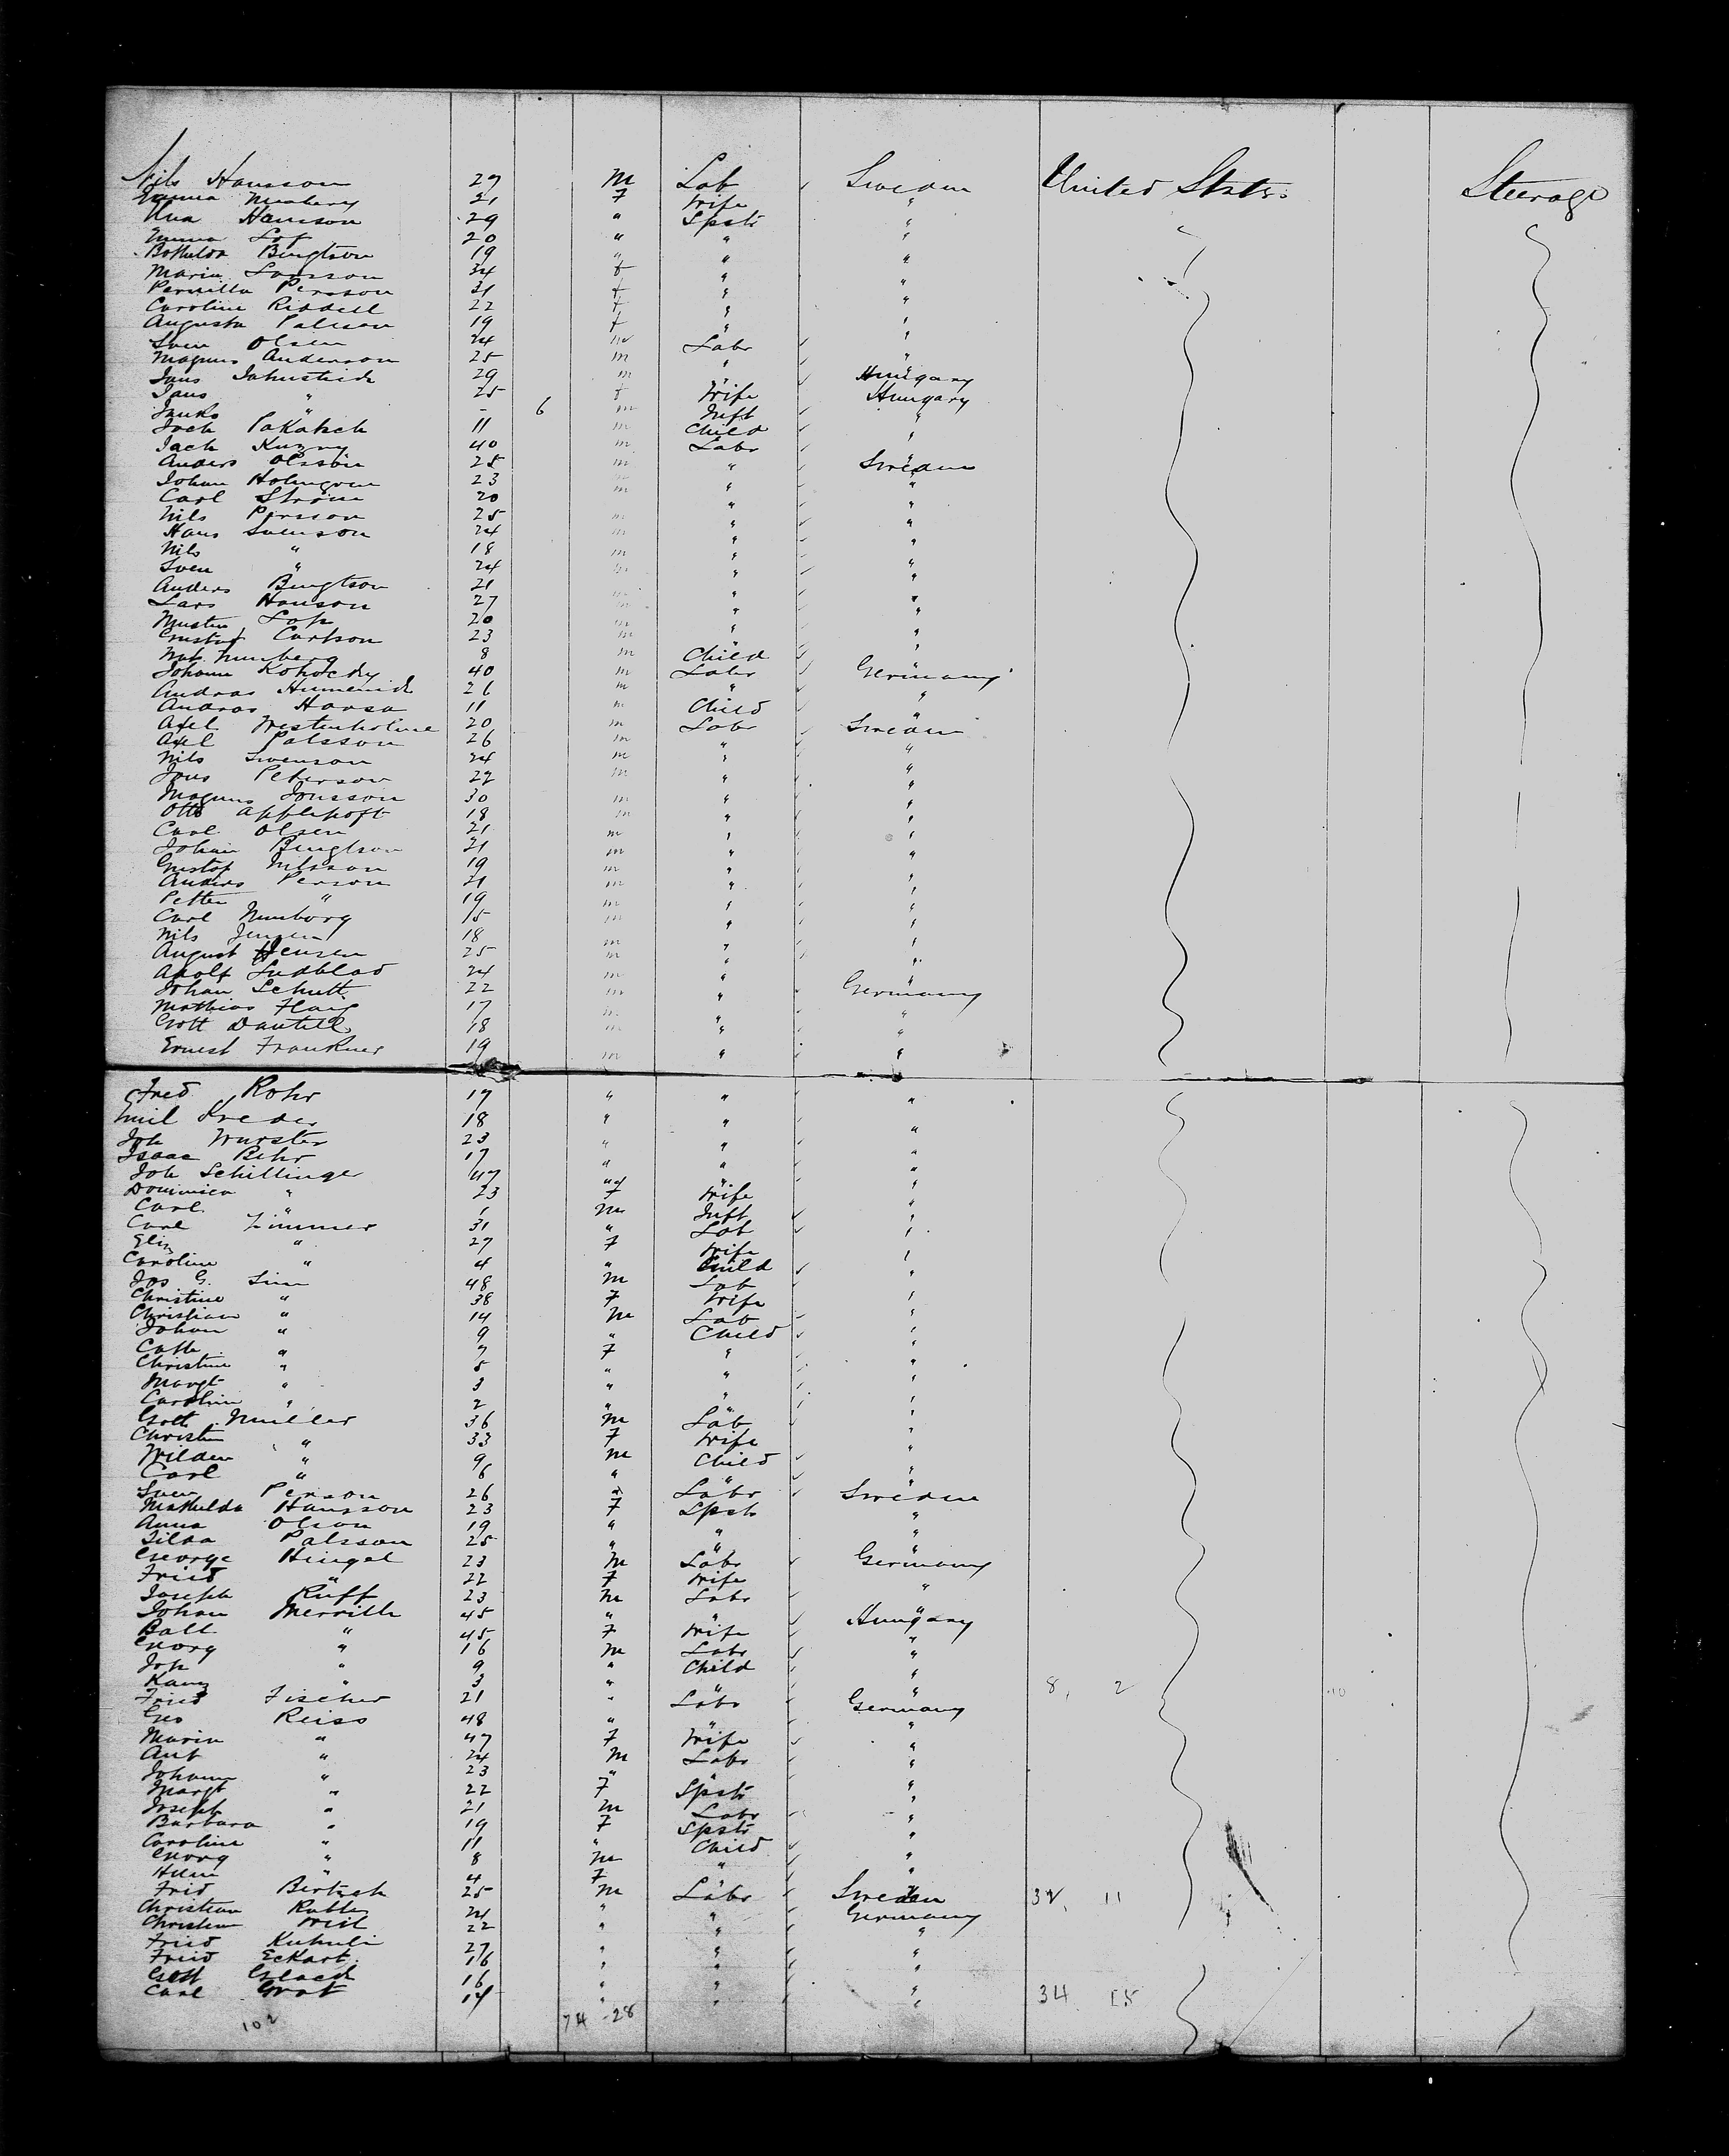 Nils Hansson 27 M Lab Sweden United States Steerage
Emma Munberg 21 F Wife "
Una Hanson 29 " Spstr "
Emma Lof 20 " " "
Bothilda Bengtson 19 " " "
Maria Larsson 34 f " "
Pernilla Persson 31 f " "
Caroline Riddell 22 f " "
Augusta Palsson 19 f " "
Sven Olsen 24 m Labr "
Magnus Anderson 25 m " "
Jans 29 m " Hungary
Jans " 25 f Wife Hungary
Janko " - 6 m Inft "
Joch Pakatsch 11 m Child "
Jach Kuzny 40 m Labr "
Anders Olsson 25 m " Sweden
Johan Holmgren 23 m " "
Carl Strom 20 " "
Nils Persson 25 m " "
Hans Svenson 24 m " "
Nils " 18 m " "
Sven " 24 m " "
Anders Bengtson 21 " "
Lars Hanson 27 m " "
20 m " "
Gustaf Carlson 23 m " "
Munberg 8 m Child "
Johann Kohocky 40 m Labr Germany
Andras Humenick 26 m " "
Andras Harsa 11 m Child "
Axel Westenholme 20 m Labr Sweden
Axel Palsson 26 m " "
Nils Swenson 24 m " "
Jons Peterson 22 m " "
Magnus Jonsson 30 m " "
Otto Applehoft 18 m " "
Carl Olsen 21 m " "
Johan Bengtson 21 m " "
Gustof Nilsson 19 m " "
Anders Person 21 m " "
Petter " 19 m " "
Carl Munborg 15 m " "
Nils Jensen 18 m " "
August Jensen 25 m " "
Adolf Ludblad 24 m " "
Johan Schutt 22 m " Germany
Mathias Haig 17 m " "
Gott Dautell 18 m " "
Ernest Frankner 19 m " "
Fred Rohr 17 " " "
Emil Kreder 18 " " "
Joh Wurster 23 " " "
Isaac Behr 17 " " "
Joh Schillinger 47 " " "
Dominica " 23 F Wife "
Carl " 1 m Inft "
Carl Zimmer 31 " Lab "
Eliz " 27 F Wife "
Caroline " 4 " Child "
Jos G. Sinn 48 m Lab "
Christine " 38 F Wife "
Christian " 14 m Lab "
Johan " 9 " Child "
Cath " 7 F " "
Christine " 5 " " "
Margt " 3 " " "
Caroline " 2 " " "
Gott Muller 36 m Lab "
Christin " 33 F Wife "
" 9 m Child "
Carl " 6 " " "
Sven Person 26 " Labr Sweden
Mathilda Hansson 23 F Spstr "
Anna Olson 19 " " "
Tilda Palsson 25 " " "
George Hingel 23 m Labr Germany
Fried " 22 F Wife "
Joseph Ruff 23 m Labr "
Johan Merrith 45 " " Hungary
Balt " 45 F Wife "
Georg " 16 m Labr "
Jos " 9 " Child "
" 3 " " " 8, 2 10
Fried Fischer 21 " Labr Germany
Geo Reiss 48 " " "
Maria " 47 F Wife "
Ant " 24 m Labr "
Johann " 23 " " "
Margt " 22 F Spstr "
Joseph " 21 m Labr "
Barbara " 19 F Spstr "
Caroline " 11 " Child "
Georg " 8 m " "
" 4 F " "
Frid Bertsch 25 m Labr Sweden 32, 11
Christian 21 " " Germany
Christian Weil 22 " " "
Fried Kuhnli 27 " " "
Fried Eckart 16 " " "
Gott 16 " " "
Carl Grat 14 " " " 34 15
102 74 - 28